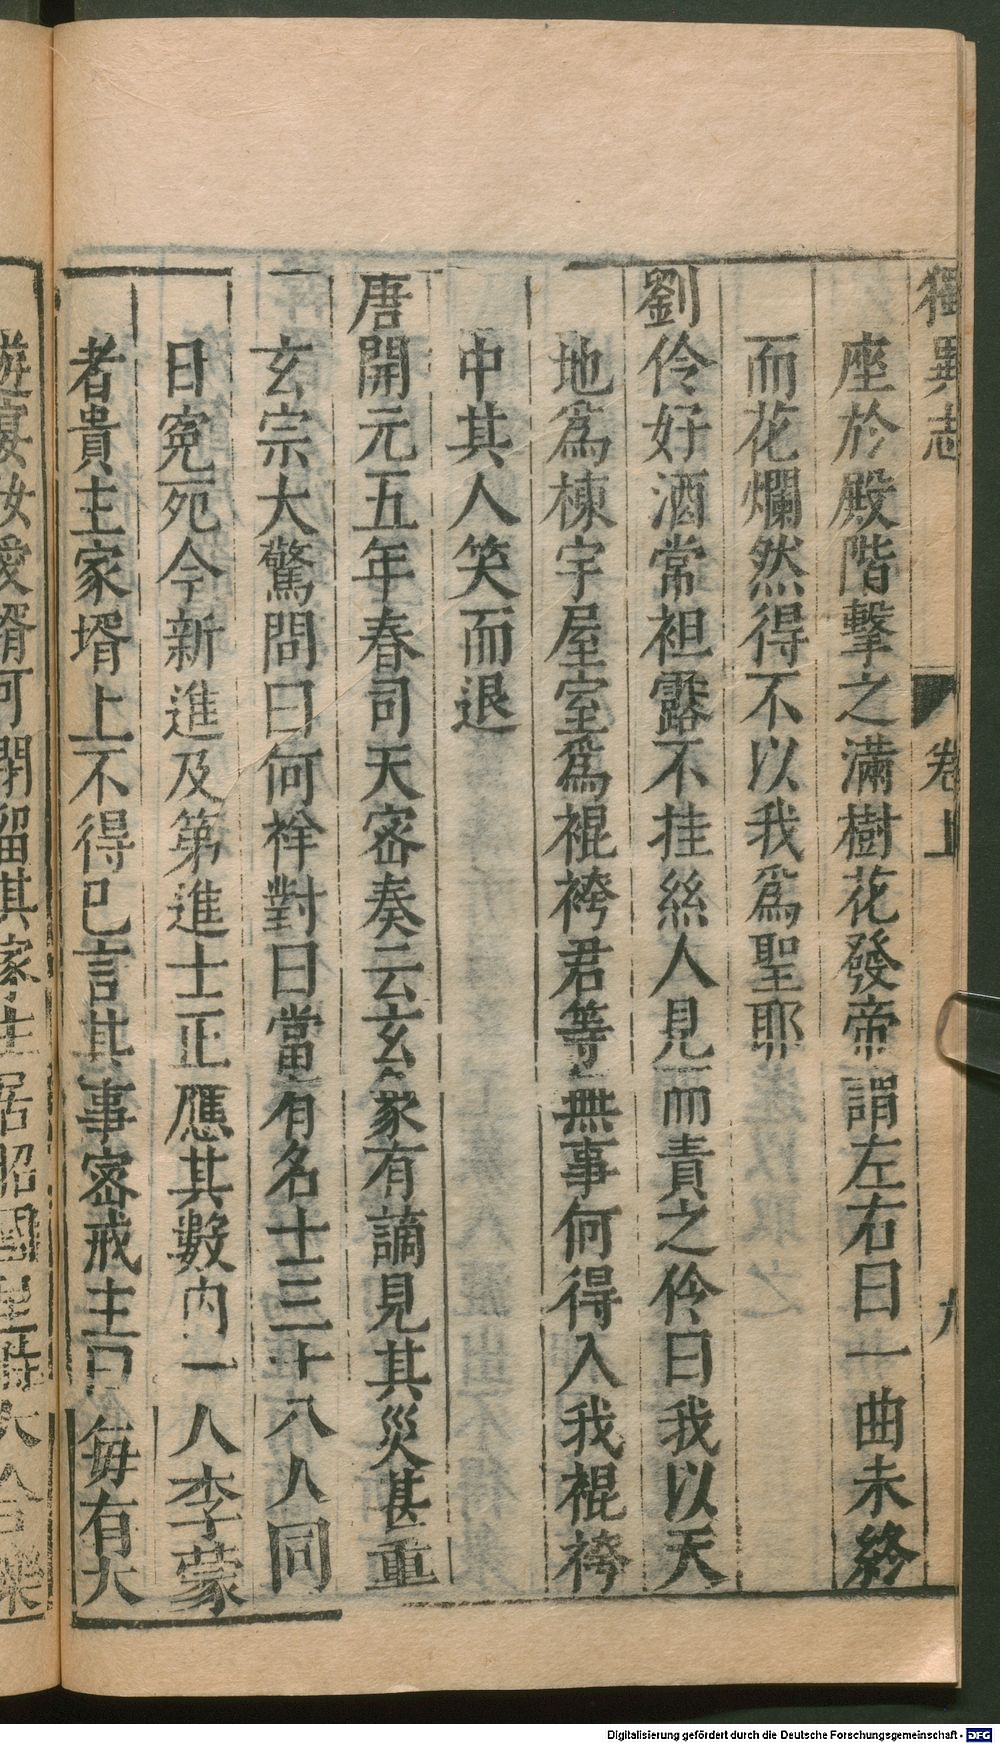 獨異志 卷上 九
座於殿階擊之滿樹花發帝謂左右曰一曲未終
而花爛然得不以我爲聖耶
劉伶好酒常袒露不挂絲人見而責之伶曰我以天
地爲棟宇屋室爲裩袴君等無事何得入我裩袴
中其人笑而退
唐開元五年春司天密奏云玄象有謫見其災甚重
玄宗大驚問曰何祥對曰當有名士三十八人同
日寃死今新進及第進士正應其數内一人李蒙
者貴主家壻上不得已言其事密戒主曰每有大
遊宴汝愛壻可閉留其家主居昭國里時大合樂
Digitalisierung gefördert durch die Deutsche Forschungsgemeinschaft - DFG